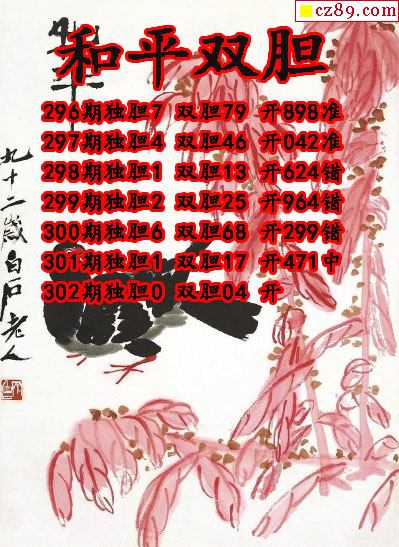 cz89.com
和平双胆
296期独胆7 双胆79 开898准
297期独胆4 双胆46 开042准
298期独胆1 双胆13 开624错
299期独胆2 双胆25 开964错
300期独胆6 双胆68 开299错
301期独胆1 双胆17 开471中
302期独胆0 双胆04 开
九十二岁白石老人